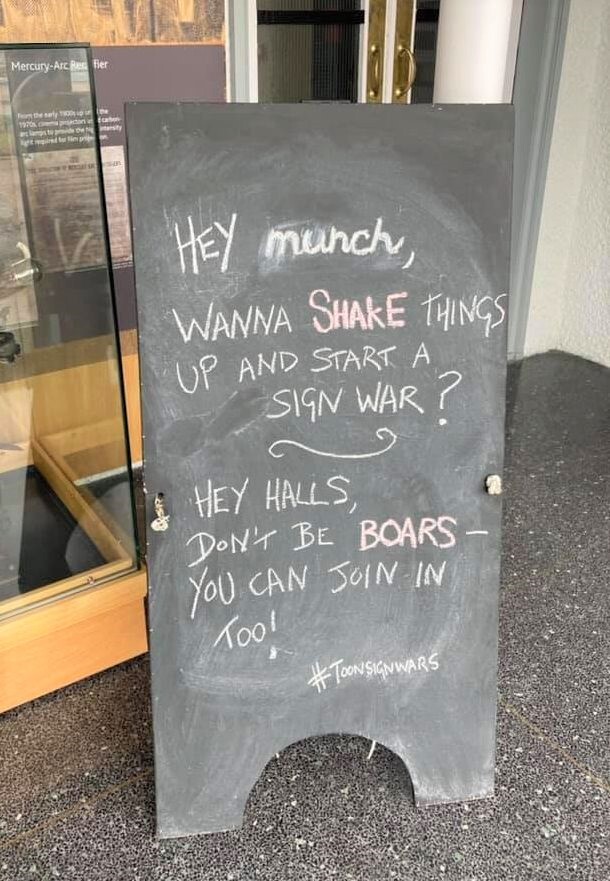 Mercury-Arc Rectifier
From the early 1900s up until the
1970s, cinema projectors used carbon-
arc lamps to provide the high intensity
light required for film projection.
HEY munch,
WANNA SHAKE THINGS
UP AND START A
SIGN WAR?
HEY HALLS,
DON'T BE BOARS -
YOU CAN JOIN IN
TOO!
#TOONSIGNWARS